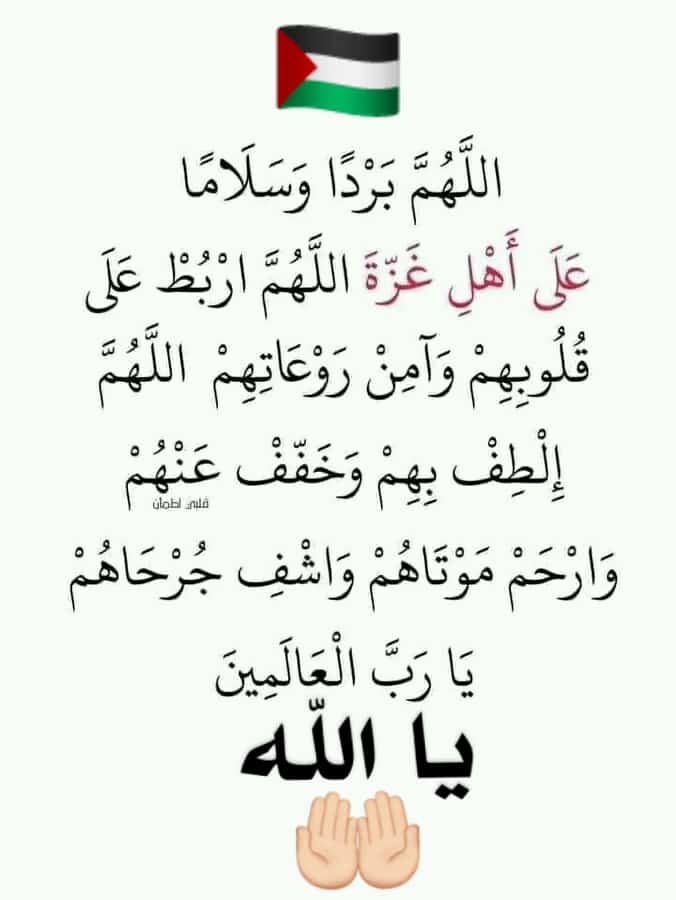 اللَّهُمَّ بَرْدًا وَسَلَامًا
عَلَى أَهْلِ غَزّةَ اللَّهُمَّ ارْبُطْ عَلَى
قُلُوبِهِمْ وَآمِنْ رَوْعَاتِهِمْ اللَّهُمَّ
إِلْطِفْ بِهِمْ وَخَفّفْ عَنْهُمْ
قلبي اطمأن
وَارْحَمْ مَوْتَاهُمْ وَاشْفِ جُرْحَاهُمْ
يَا رَبَّ الْعَالَمِينَ
يا اللّه